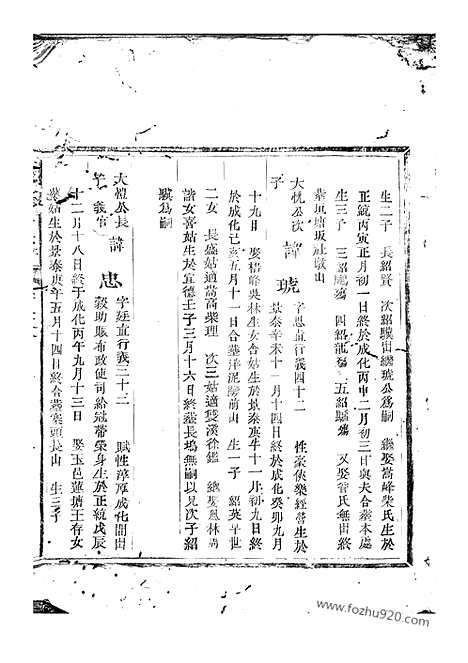 生二子 長紹賢 次紹驥出繼琥公為嗣 繼娶嵩峰柴氏生於
正統丙寅正月初一日終於成化丙申二月初三日與夫合葬本處
生三子 三紹 四紹 五紹 又娶曾氏無出終
葬垣塘坂社墩山
大忱公次子 諱琥 字思直行義四十二 性豪俠樂經營生於
景泰辛未十一月十四日終於成化癸卯九月
十九日 娶梧峰吳林生女舍姑生於景泰庚午十一月初九日終
於成化己亥五月十一日合葬洋泥 前山 生一子 紹英早世
二女 長盛姑適嵩高柴理 次三姑適雙溪徐鑑 繼娶鳳林
諧女喜姑生於宣德壬子三月十六日終葬長塢無嗣以見次子紹
驥為嗣
大體公長子義官 諱忠 字廷直行義三十三 賦性淳厚成化間因
穀助賑布政使司給冠帶榮身生於正統戊辰
十二月十八日終于成化丙午九月十三日 娶玉邑蓮塘王存女
葵姑生於景泰庚午五月十四日終合葬葉頭長山 生三子
www.fozhu920.com